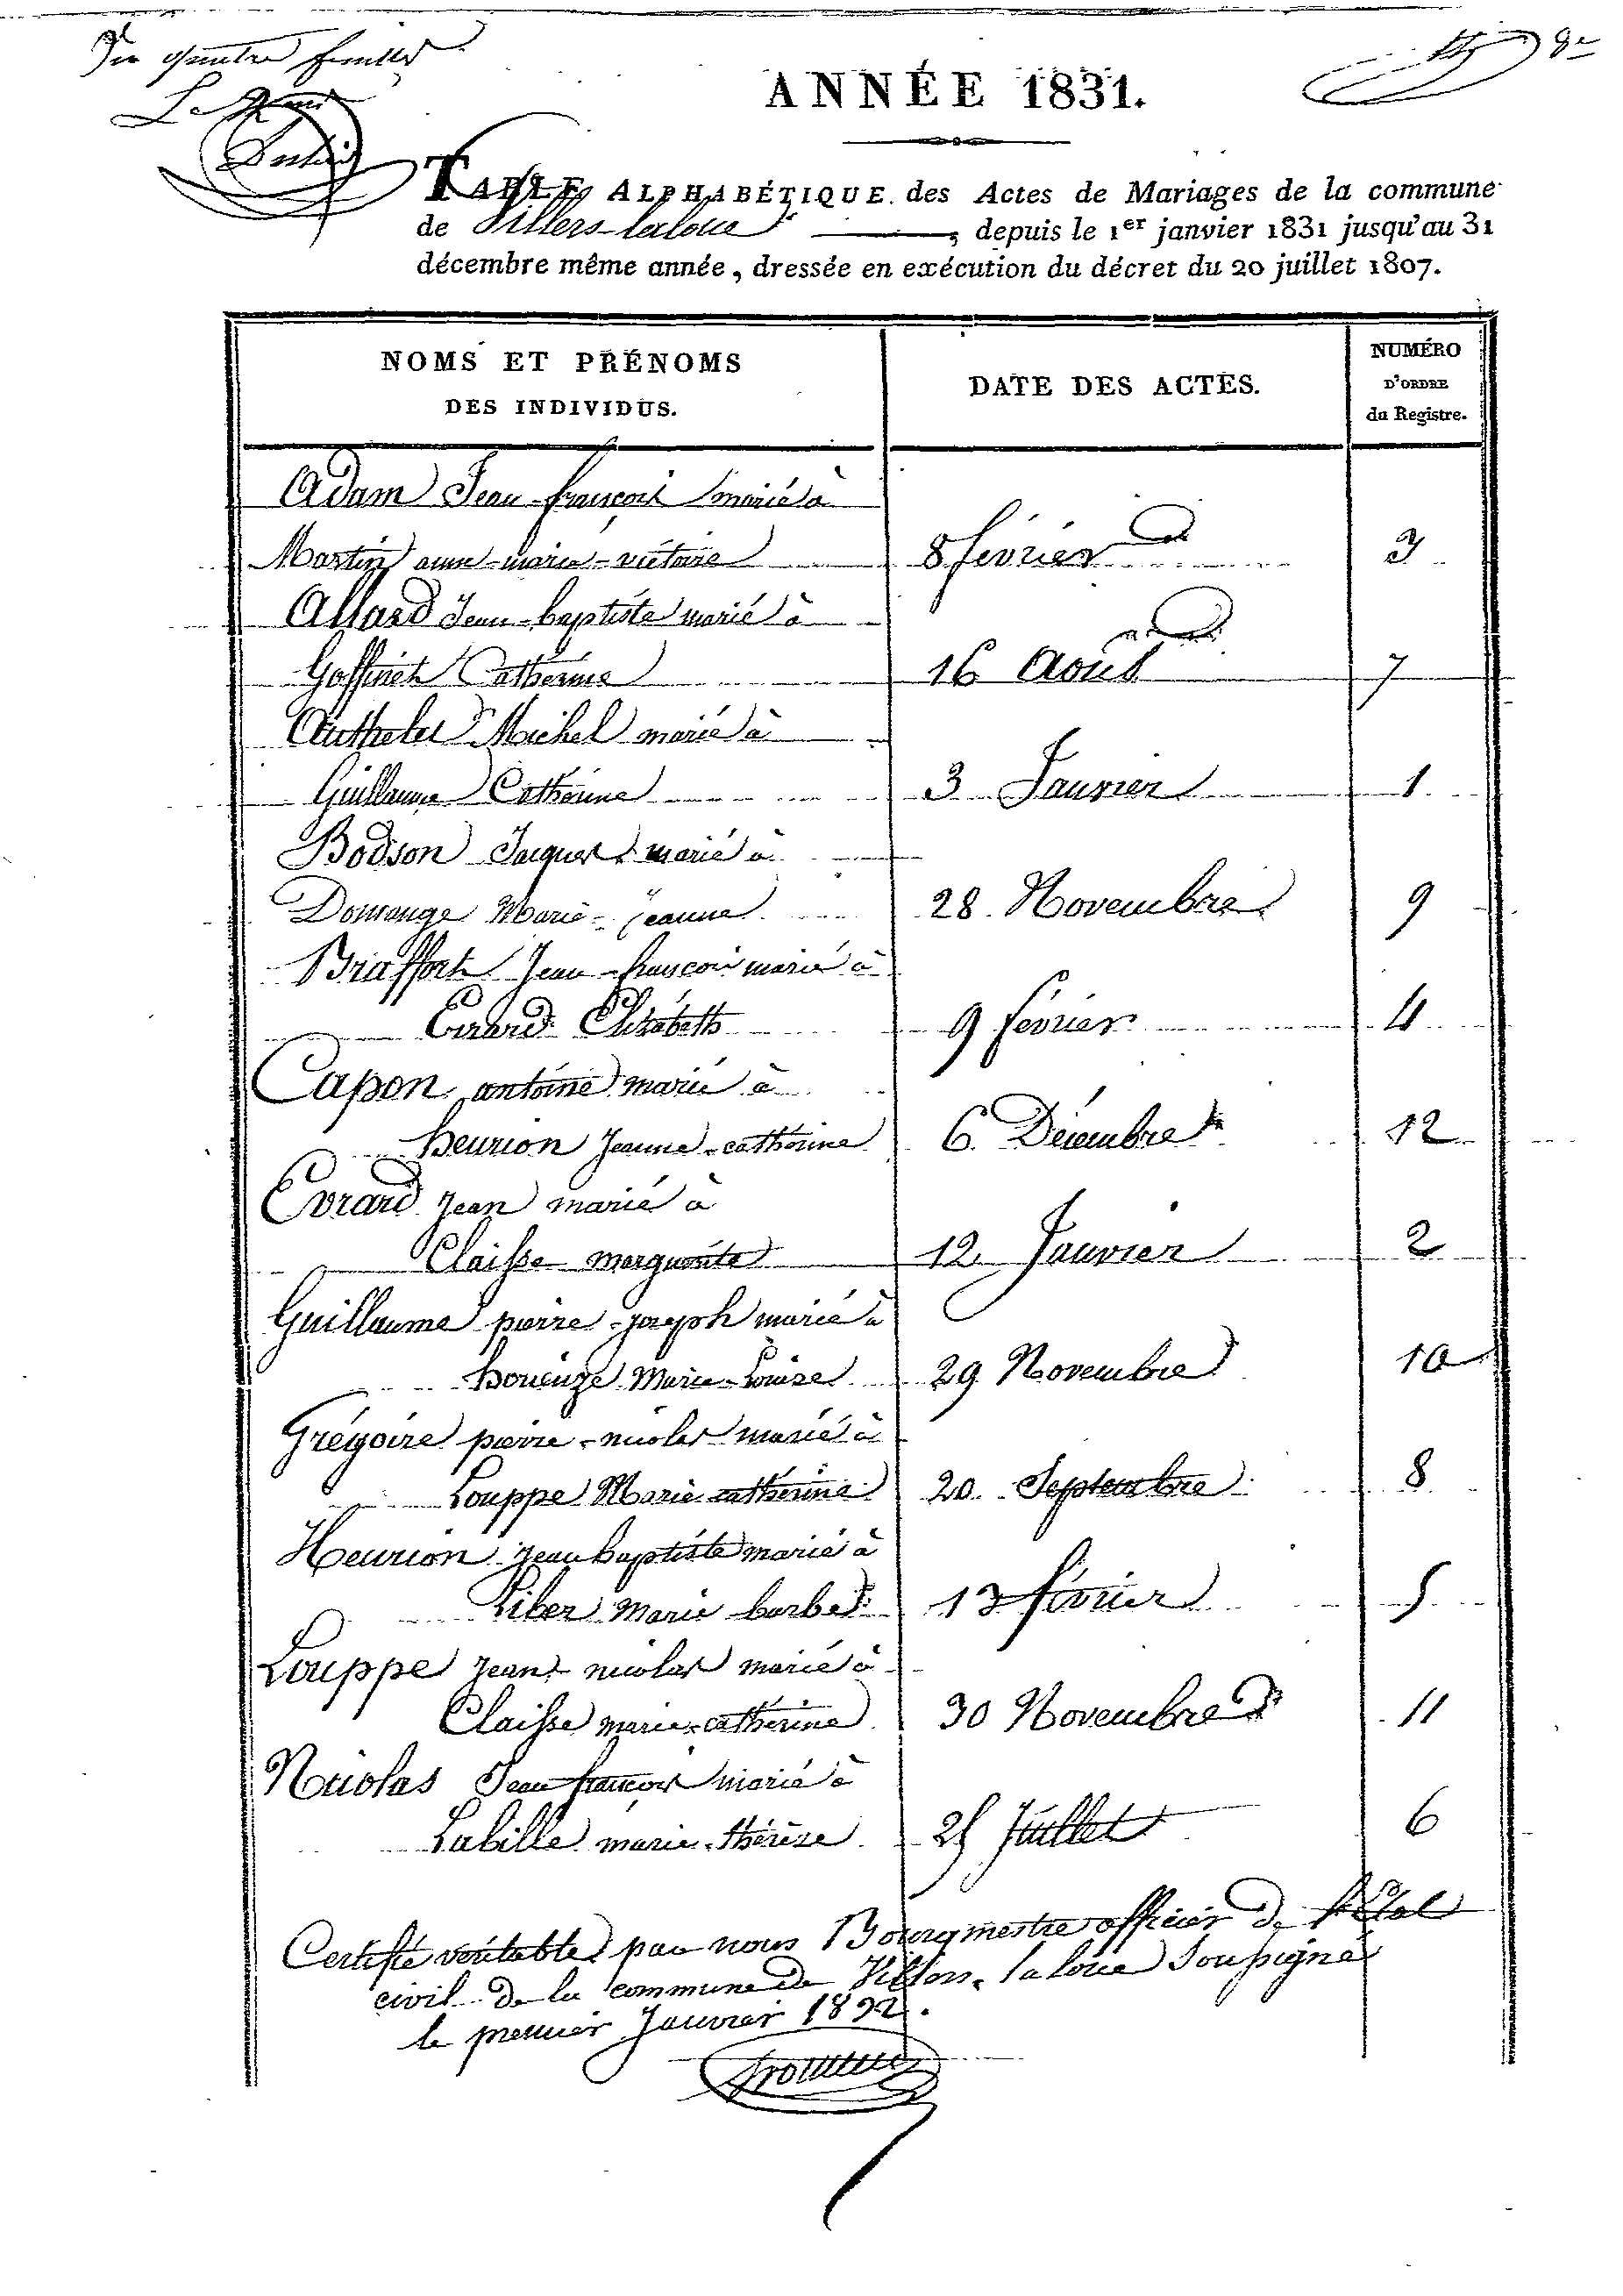 quatre
8e
ANNÉE 1831.
TABLE ALPHABÉTIQUE des Actes de Mariages de la commune
de Villers-laloue, depuis le 1er janvier 1831 jusqu'au 31
décembre même année, dressée en exécution du décret du 20 juillet 1807.
NOMS ET PRÉNOMS
DES INDIVIDUS.
DATE DES ACTES.
NUMÉRO
D'ORDRE
du Registre.
Adam Jean françois marié à
Martin anne-marie-victoire 8 février 3
Allard Jean-baptiste marié à
Goffinet Catherine 16 Aout 7
Authelet Michel marié à
Guillaume Catherine 3 Janvier 1
Bodson Jacques marié à
Domange Marie-jeanne 28 Novembre 9
Briaffort Jean-françois marié à
Evrard Elizabeth 9 février 4
Capon antoine marié à
henrion Jeanne-catherine 6 Décembre 12
Evrard jean marié à
Claisse marguerite 12 Janvier 2
Guillaume pierre-joseph marié à
Marie-Louise 29 Novembre 10
Grégoire pierre-nicolas marié à
Louppe Marie catherine 20 Septembre 8
Henrion jean baptiste marié à
Liber marie barbe 13 février 5
Louppe jean-nicolas marié à
Claisse marie-catherine 30 Novembre 11
Nicolas Jean françois marié à
Labille marie-thérèse 25 Juillet 6
Certifié véritable par nous Bourgmestre officier de l'Etat
civil de la commune de Villers-laloue Soussigné
le premier Janvier 1832.